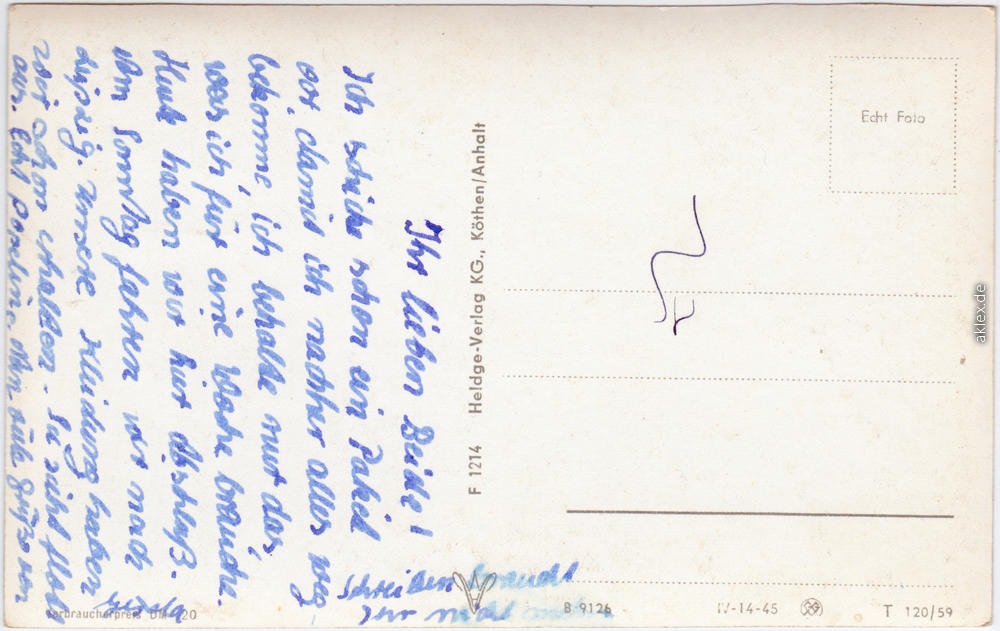 Ihr lieben Beide!
Ich schicke schon ein Paket
ab, damit ich nachher alles weg
bekomme, ich behalte nur das,
was ich für eine Woche brauche.
Heute haben wir hier Abschluß.
Am Sonntag fahren wir nach
Leipzig. Unsere Kleidung haben
wir schon erhalten - sie sieht
aus. Echt Popeline.
Schreiben braucht
Ihr nicht mehr
F 1214 Heldge-Verlag KG., Köthen/Anhalt
Echt Foto
Verbraucherpreis DM 0,20
B 9126
IV-14-45
T 120/59
aklex.de